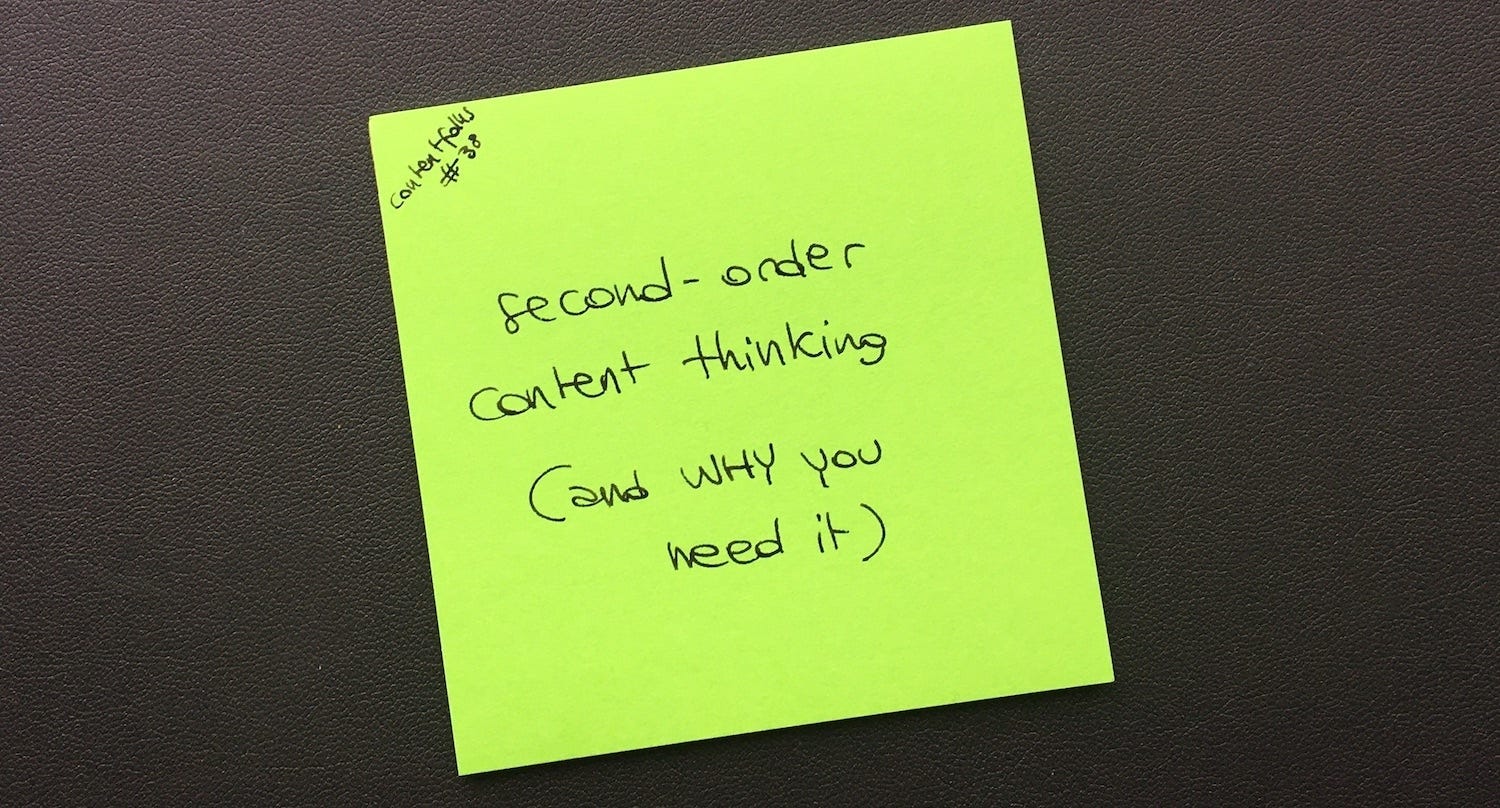 contentfolks
#38
second-order
content thinking
(and WHY you
need it)